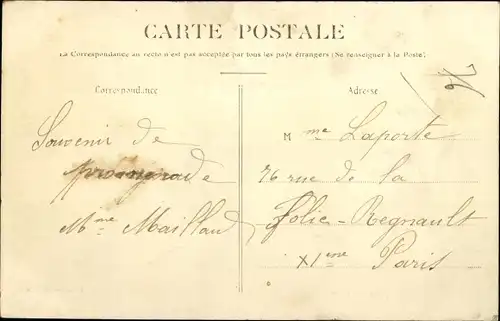 CARTE POSTALE
La Correspondance au recto n'est pas acceptée par tous les pays étrangers (Se renseigner à la Poste)
Correspondance
Souvenir de
promenade
Mme Maillaud
Adresse
Mme Laporte
76 rue de la
Folie-Regnault
XIème Paris